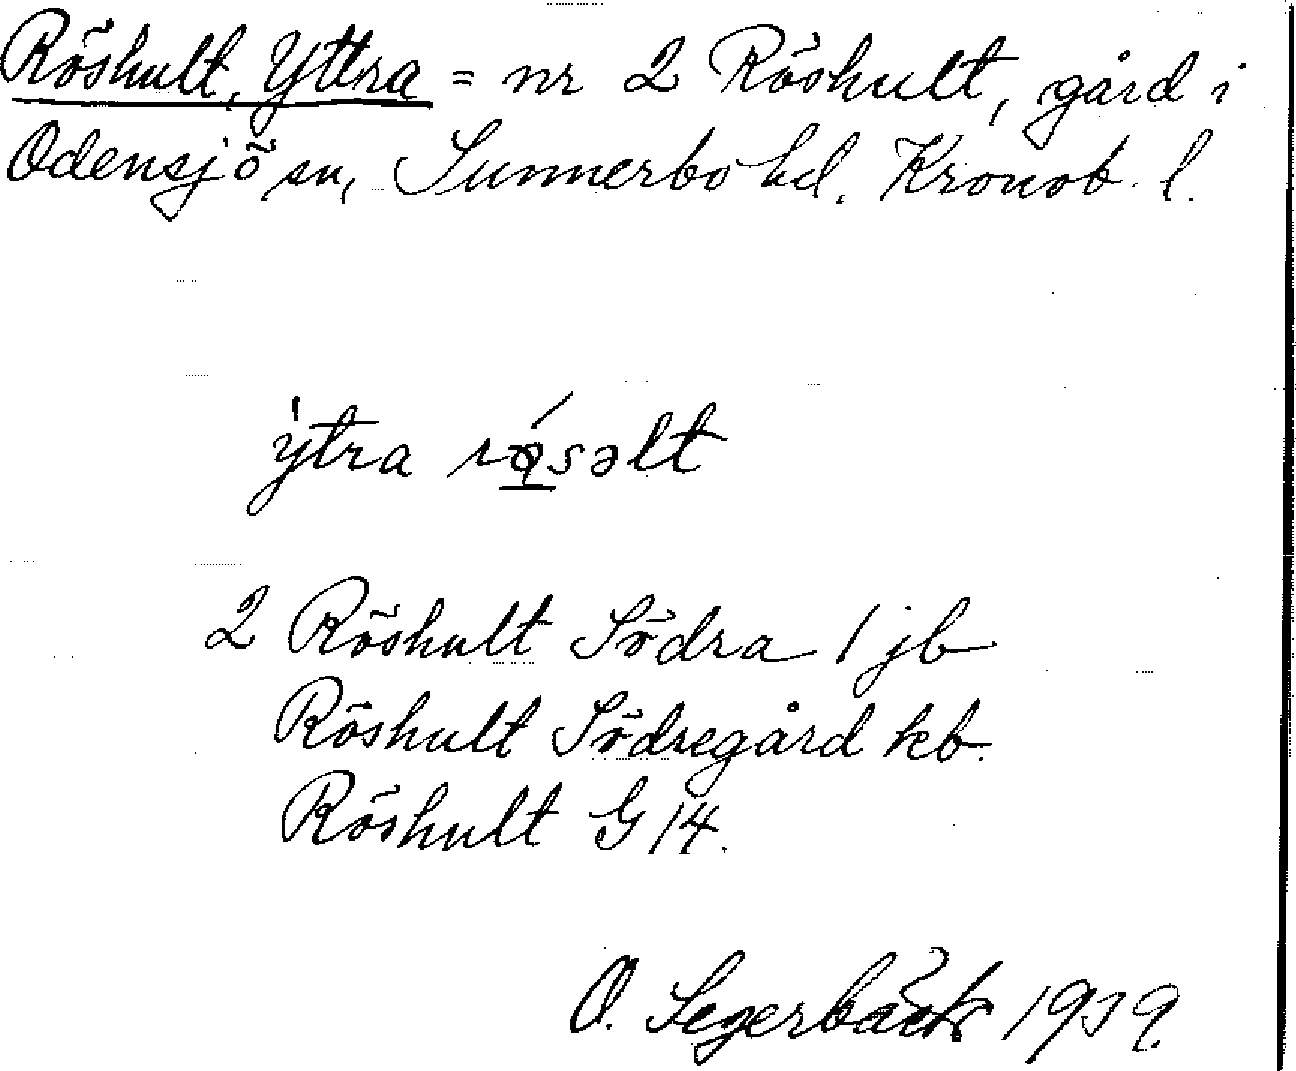 Röshult, Yttra = nr 2 Röshult, gård i
Odensjö sn, Sunnerbo hd. Kronob. l.
ýtra rǫ́səlt
2 Röshult Södra 1 jb
Röshult Södregård kb.
Röshult G 14.
O. Segerbäck 1939.